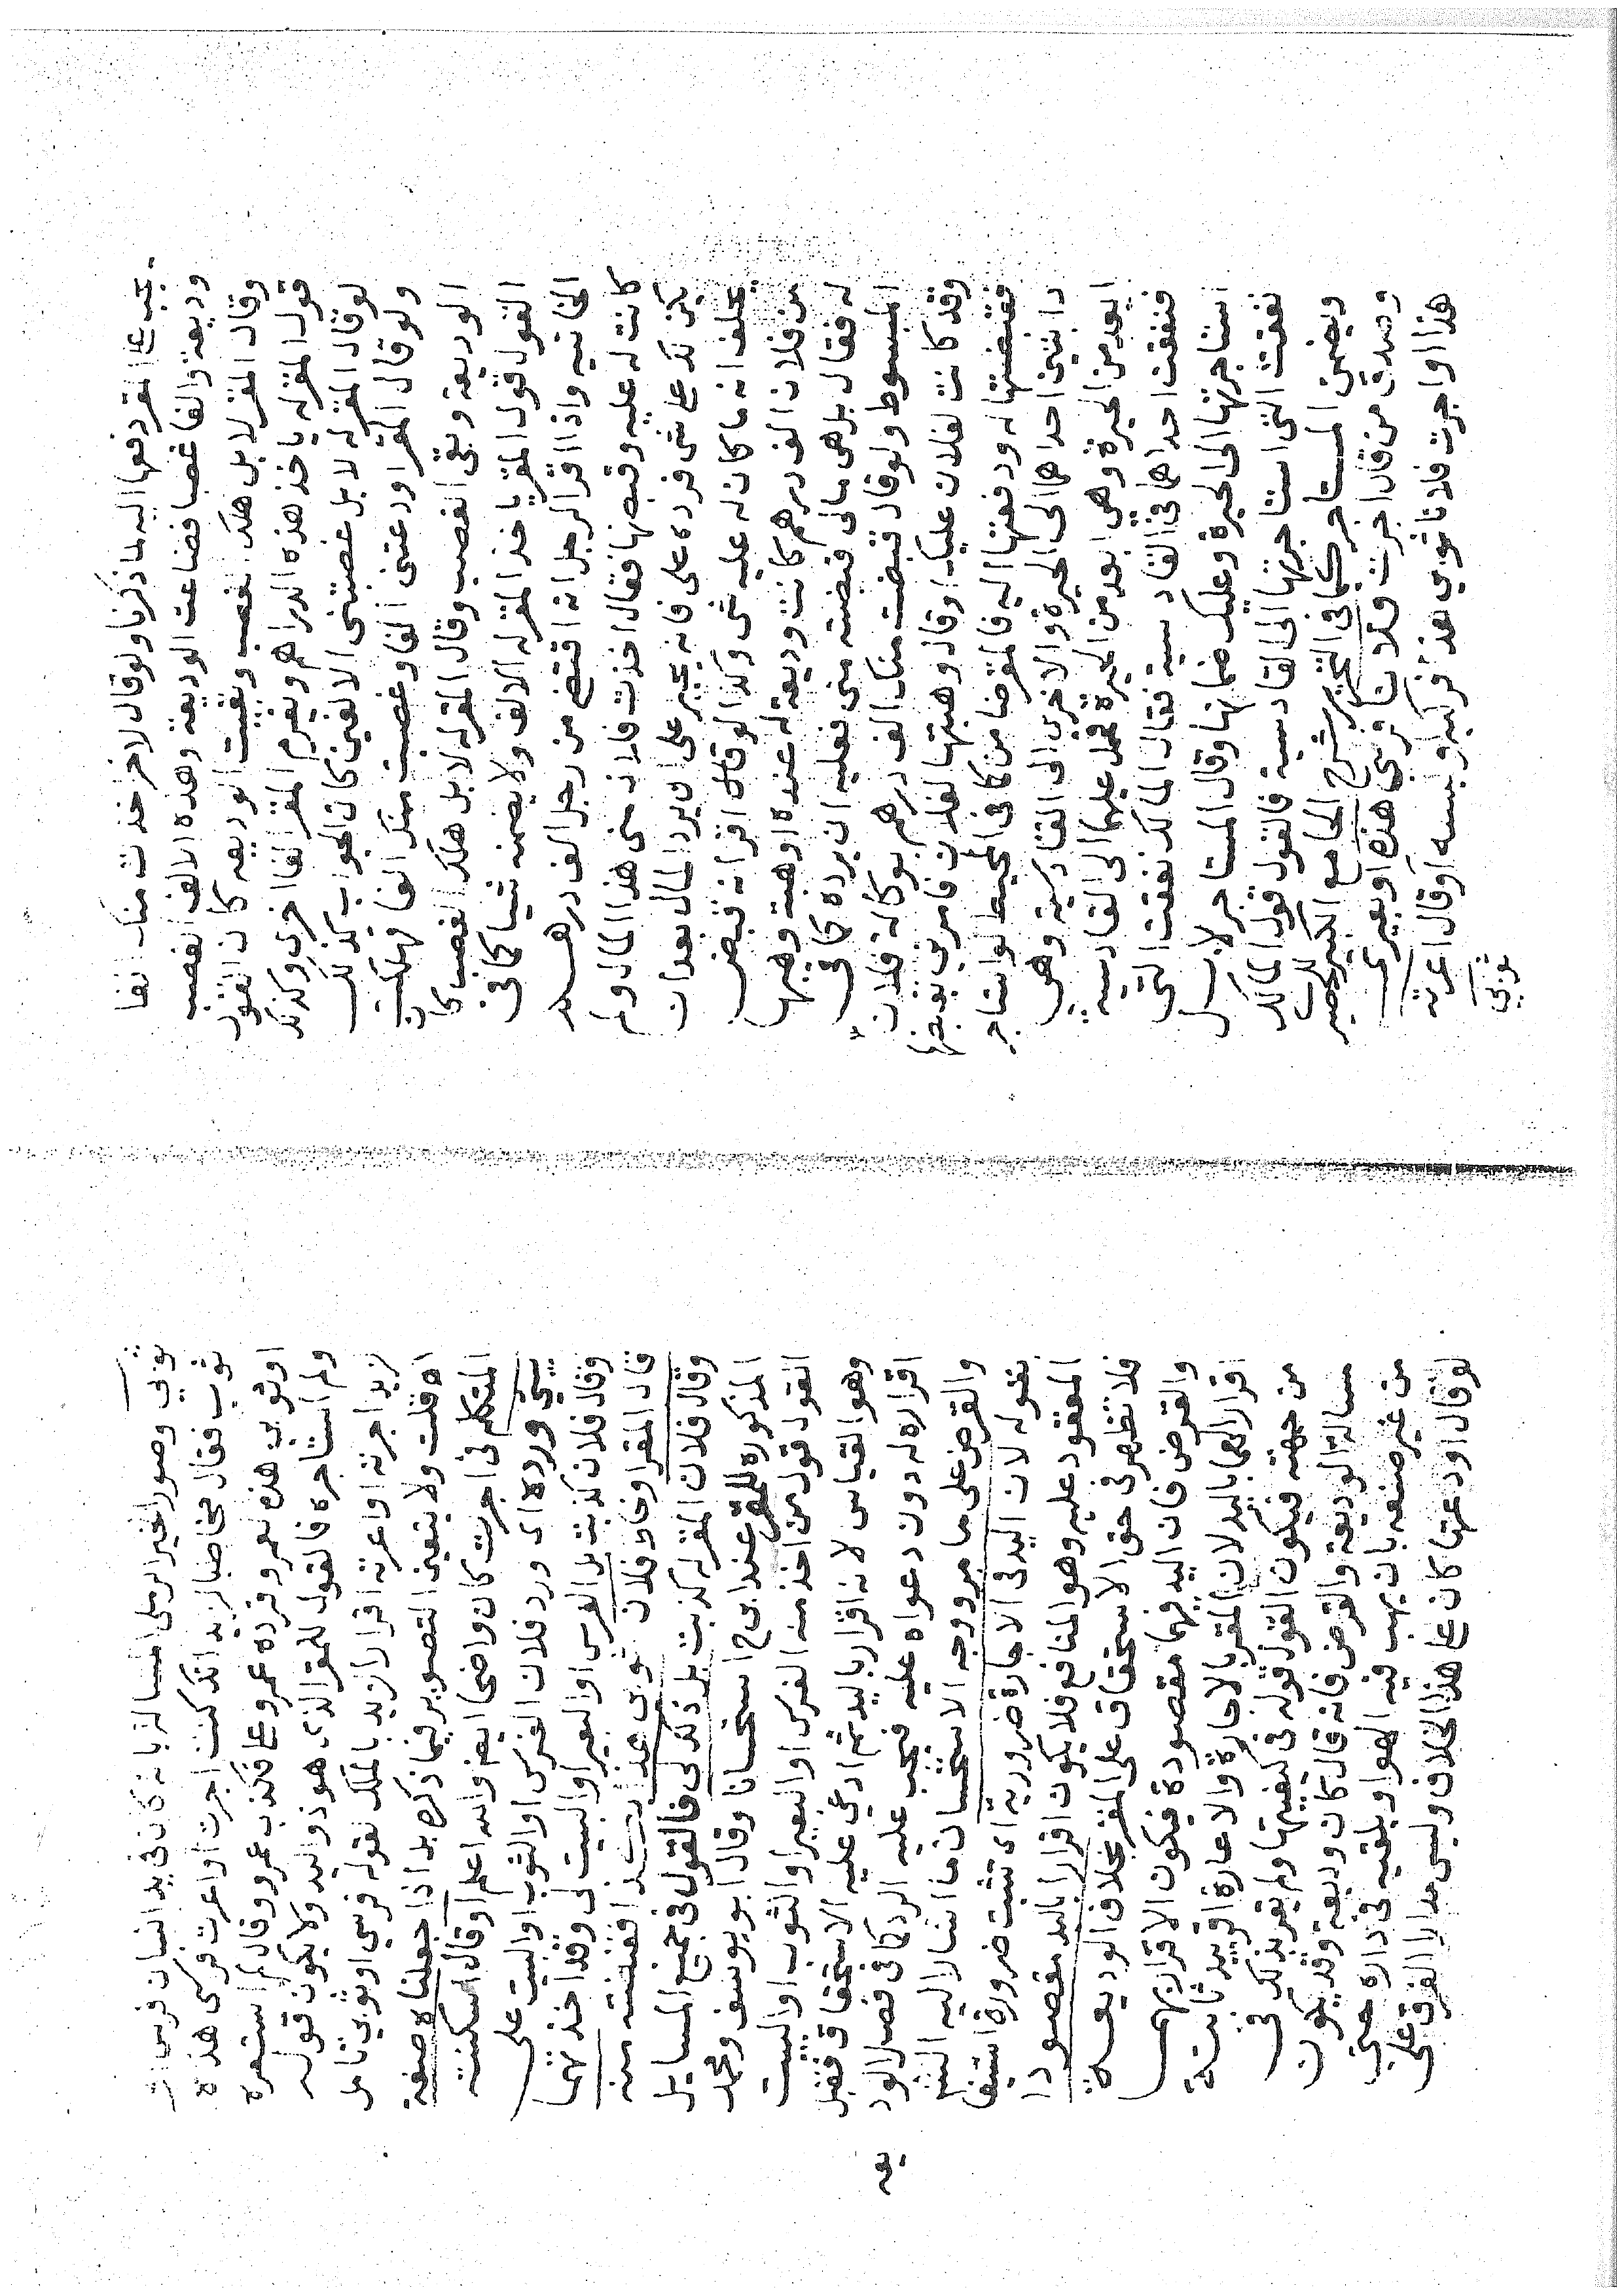 يجب ع المقر دفعها اليه لما ذكرنا ولو قال لاخر اخذت منك الفا
وديعة والفا غصبا فضاعت الوديعة وهذه الالف الغصب
وقال المقر لا بل هلك الغصب وبقيت الوديعه كان القول
قول المقر له ياخذ هذه الدراهم ويغرم المقر الفا اخرى وكذلك
لو قال المقر له لا بل غصبتنى الالفين كان الجواب كذلك
ولو قال المقر اودعتنى الفا وغصبت منك الفا فهلكت
الوديعة وبقى الغصب وقال المقر له لا بل هلك الغصب كا
القول قول المقر ياخذ المقر له الالف ولا يضمنه شيا كما فى
الخانيه واذا اقر الرجل انه اقتضى من رجل الف درهم
كانت له عليه وقبضها فقال اخذت فلانه منى هذا المال ولم
يكن لك على شى فرده على فانه يجبر على ان يرد المال بعد ان
يحلف انه ما كان له عليه شى وكذا لو قال اقر انه قبض
من فلان الف درهم كانت وديعة له عنده او هبة وهبها
له فقال بل هى مالى قبضته منى فعليه ان يرده كما فى
المبسوط ولو قال قبضت منك الف درهم بوكالة فلان
وقد كانت لفلان عليك او قال وهبتها لفلان فامرنى بقبضها
فقبضتها له ودفعتها اليه فالمقر ضامن كما فى المحيط لو استاجر
دابتين احداهما الى الحيرة والاخرى الى القادسية وهى
ابعد من الحيرة وهى ابعد من الحيرة فحمل عليهما الى القادسية
فنفقت احداهما فى القادسية فقال المالك نفقت التى
استاجرتها الى الحيرة وعليك ضمانها وقال المستاجر لا بل
نفقت التى استاجرتها الى القادسية فالقول قول المالك
ويضمن المستاجر كما فى التحرير شرح الجامع الكبير
وصدق من قال اجرت فلانا فرسى هذه او بعيرى
هذا او اجرت فلانا ثوبي هذا فركبه او لبسه او قال اعرته
ثوبي
ثوبي وصور الخير الرملى المسالة بانه كان فى يد انسان فرس او
ثوب فقال مخاطبا لزيد انك كنت اجرت او اعرت فرسى هذه
او ثوبى هذا لعمرو ورده عمرو على فكذب عمرو وقال لم استعره
ولم استاجره فالقول للمقر الذى هو ذو اليد ولا يكون قوله
زيدا اجرته او اعرته اقرارا لزيد بالملك لقوله فرسي او ثوبي تامل
اه قلت ولا يتعين التصوير فيما ذكره بل اذا جعلناه صفة
المتكلم فى اجرت كان واضحا ايضا والله اعلم او قال اسكنته
بيتي ورده اى ورد فلان الفرس او الثوب او البيت على
وقال فلان كذبت بل الفرس او البعير او البيت لى وقد اخذتها
قال المقر او خاط فلان ثوبى هذا بكذا فقبضته منه
وقال فلان المقر له كذبت بل ذلك لى فالقول فى جميع المسايل
المذكوره للمقر عند ابى ح استحسانا وقال ابو يوسف ومحمد
القول قول من اخذ منه الفرس او البعير او الثوب او البيت
وهو القياس لانه اقرار باليد ثم ادعى عليه الاستحقاق فتقبل
اقراره له دون دعواه عليه فيجب عليه الرد كما فى فصل الوديعه
والقرض على ما مر ووجه الاستحسان ما اشار اليه الشا
بقوله لان اليد فى الاجارة ضرورية اى تثبت ضرورة استيفا
المعقود عليه وهو المنافع فلا يكون اقرارا باليد مقصودا
فلا تظهر فى حق الاستحقاق على المقر بخلاف الوديعة
والقرض فان اليد فيهما مقصودة فيكون الاقرار بهما
اقرارا لهما باليد لان المقر بالاجارة والاعارة اقر بيد ثابتة
من جهته فيكون القول قوله فى كيفيتها ولم يقر بذلك فى
مسالة الوديعة والقرض فانه قال كان وديعة وقد يكون
من غير صنعه بان يهب فيه الهوا ويلقيه فى داره حتى
لو قال اودعتها كان على هذا الخلاف وليس مدار الفرق على